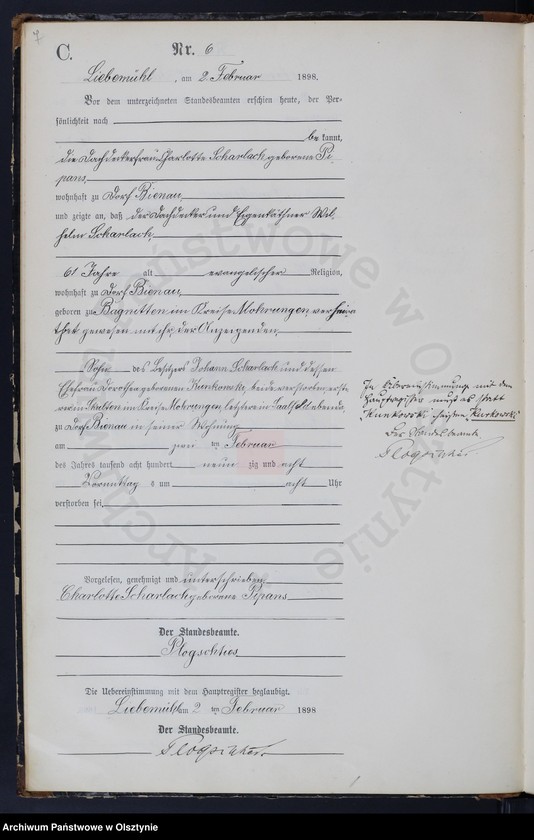 7
C.
Nr. 6
Liebemühl, am 2. Februar 1898.
Vor dem unterzeichneten Standesbeamten erschien heute, der Per-
sönlichkeit nach
bekannt,
die Dachdeckerfrau Charlotte Scharlach geborene Pi-
pans,
wohnhaft zu Dorf Bienau,
und zeigte an, daß der Dachdecker und Eigenkäthner Wil-
helm Scharlach,
61 Jahre alt, evangelischer Religion,
wohnhaft zu Dorf Bienau,
geboren zu Bagnitten im Kreise Mohrungen, verheira-
thet gewesen mit ihr, der Anzeigenden,
Sohn des Besitzers Johann Scharlach und dessen
Ehefrau Dorothea geborenen Kunkowski, beide verstorben, erste-
rer in im Kreise Mohrungen, letztere in Saalfeld
zu Dorf Bienau in seiner Wohnung
am zwei ten Februar
des Jahres tausend acht hundert neun zig und acht
Vormittag s um acht Uhr
verstorben sei,
In Übereinstimmung mit dem
Hauptregister muß es statt
"Kunkowski" heißen "Kurkowski"
Der Standesbeamte.
Vorgelesen, genehmigt und unterschrieben
Charlotte Scharlach geborene Pipans
Der Standesbeamte.
Die Uebereinstimmung mit dem Hauptregister beglaubigt.
Liebemühl am 2 ten Februar 1898
Der Standesbeamte.
Archiwum Państwowe w Olsztynie
Archiwum Państwowe w Olsztynie